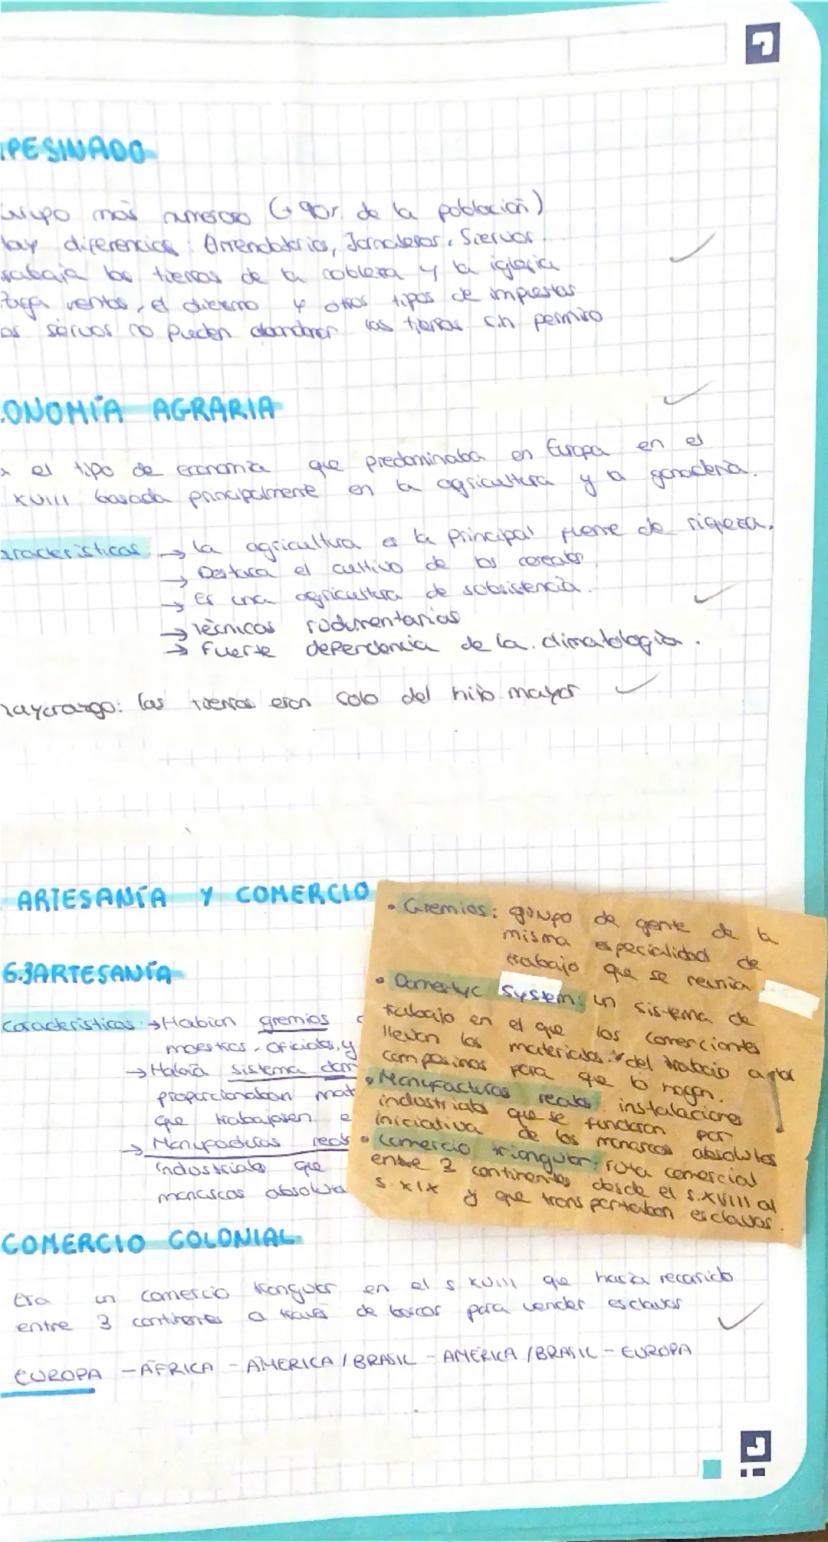 PESINADO
rupo más numeroso (+ 90% de la población)
ay diferencias: Arrendatarios, Jornaleros, Siervos.
rabaja las tierras de la nobleza y la iglesia
Paga rentas, el diezmo y otros tipos de impuestos
os siervos no pueden abandonar las tierras sin permiso
ONOMÍA AGRARIA
el tipo de economía que predominaba en Europa en el
XVIII basada principalmente en la agricultura y la ganadería.
aracterísticas → La agricultura es la principal fuente de riqueza.
→ Destaca el cultivo de los cereales
→ Es una agricultura de subsistencia.
→ Técnicas rudimentarias
→ Fuerte dependencia de la climatología.
ayorazgo: las tierras eran solo del hijo mayor
ARTESANÍA Y COMERCIO
6.3 ARTESANÍA
Características → Habían gremios
maestros, oficiales, y
→ Había sistema dom
proporcionaban mat
que trabajasen e
→ Manufacturas reale
industriales que
monarcas absoluta
• Gremios: grupo de gente de la
misma especialidad de
trabajo que se reunía
• Domestyc System: un sistema de
trabajo en el que los comerciantes
llevan los materiales del trabajo a los
campesinos para que lo hagan.
• Manufacturas reales: instalaciones
industriales que se fundaron por
iniciativa de los monarcas absolutos
• Comercio triangular: ruta comercial
entre 3 continentes desde el s.XVIII al
s.XIX y que transportaban esclavos.
COMERCIO COLONIAL
Era un comercio triangular en el s XVIII que hacía recorrido
entre 3 continentes a través de barcos para vender esclavos
EUROPA - ÁFRICA - AMÉRICA / BRASIL - AMÉRICA / BRASIL - EUROPA